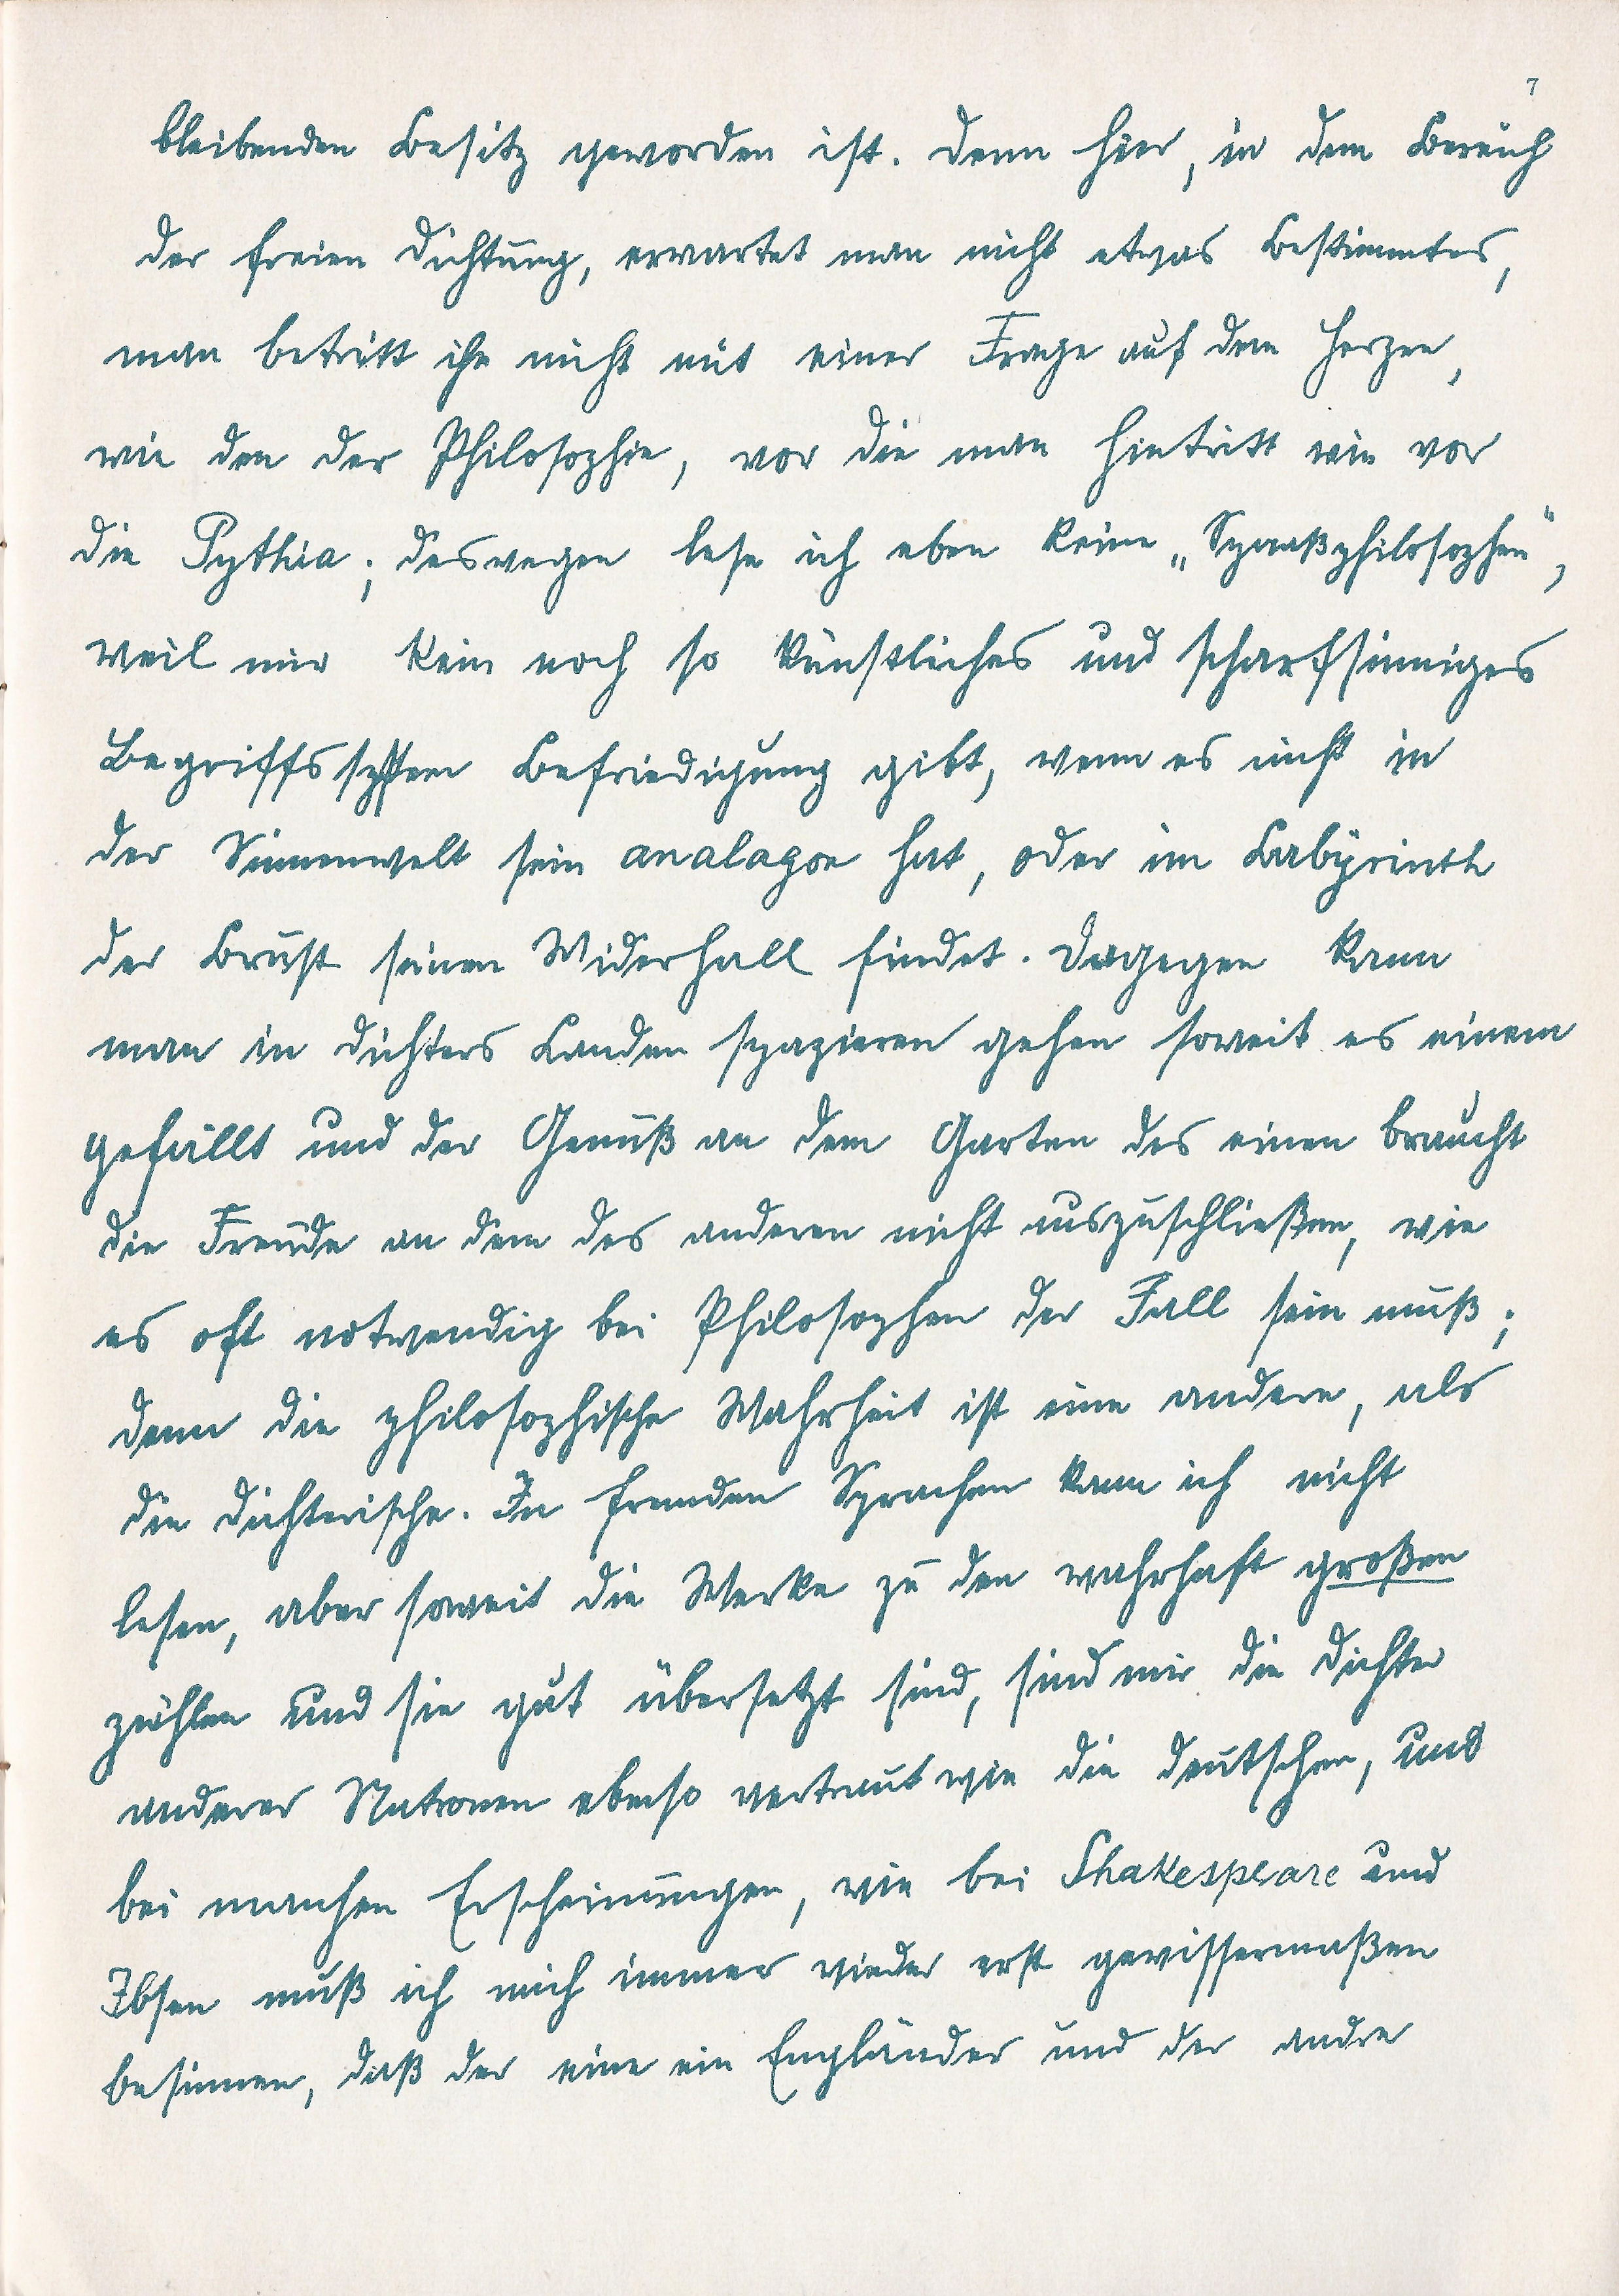 7
bleibenden Besitz geworden ist. Denn hier, in dem Bereich
der freien Dichtung, erwartet man nicht etwas Bestimmtes,
man betritt ihn nicht mit einer Frage auf dem Herzen,
wie den der Philosophie, vor die man hintritt wie vor
die Pythia; deswegen lese ich eben keine „Spaaßphilosophen“,
weil mir kein noch so künstliches und scharfsinniges
Begriffssystem Befriedigung gibt, wenn es nicht in
der Sinnenwelt sein analagon hat, oder im Labyrinth
der Brust seinen Widerhall findet. Dagegen kann
man in Dichters Landen spazieren gehen soweit es einem
gefällt und der Genuß an dem Garten des einen braucht
die Freude an dem des anderen nicht auszuschließen, wie
es oft notwendig bei Philosophen der Fall sein muß;
denn die philosophische Wahrheit ist eine andere, als
die dichterische. In fremden Sprachen kann ich nicht
lesen, aber soweit die Werke zu den wahrhaft großen
zählen und sie gut übersetzt sind, sind mir die Dichter
anderer Nationen ebenso vertraut wie die deutschen, und
bei manchen Erscheinungen, wie bei Shakespeare und
Ibsen muß ich mich immer wieder erst gewissermaßen
besinnen, daß der eine ein Engländer und der andre